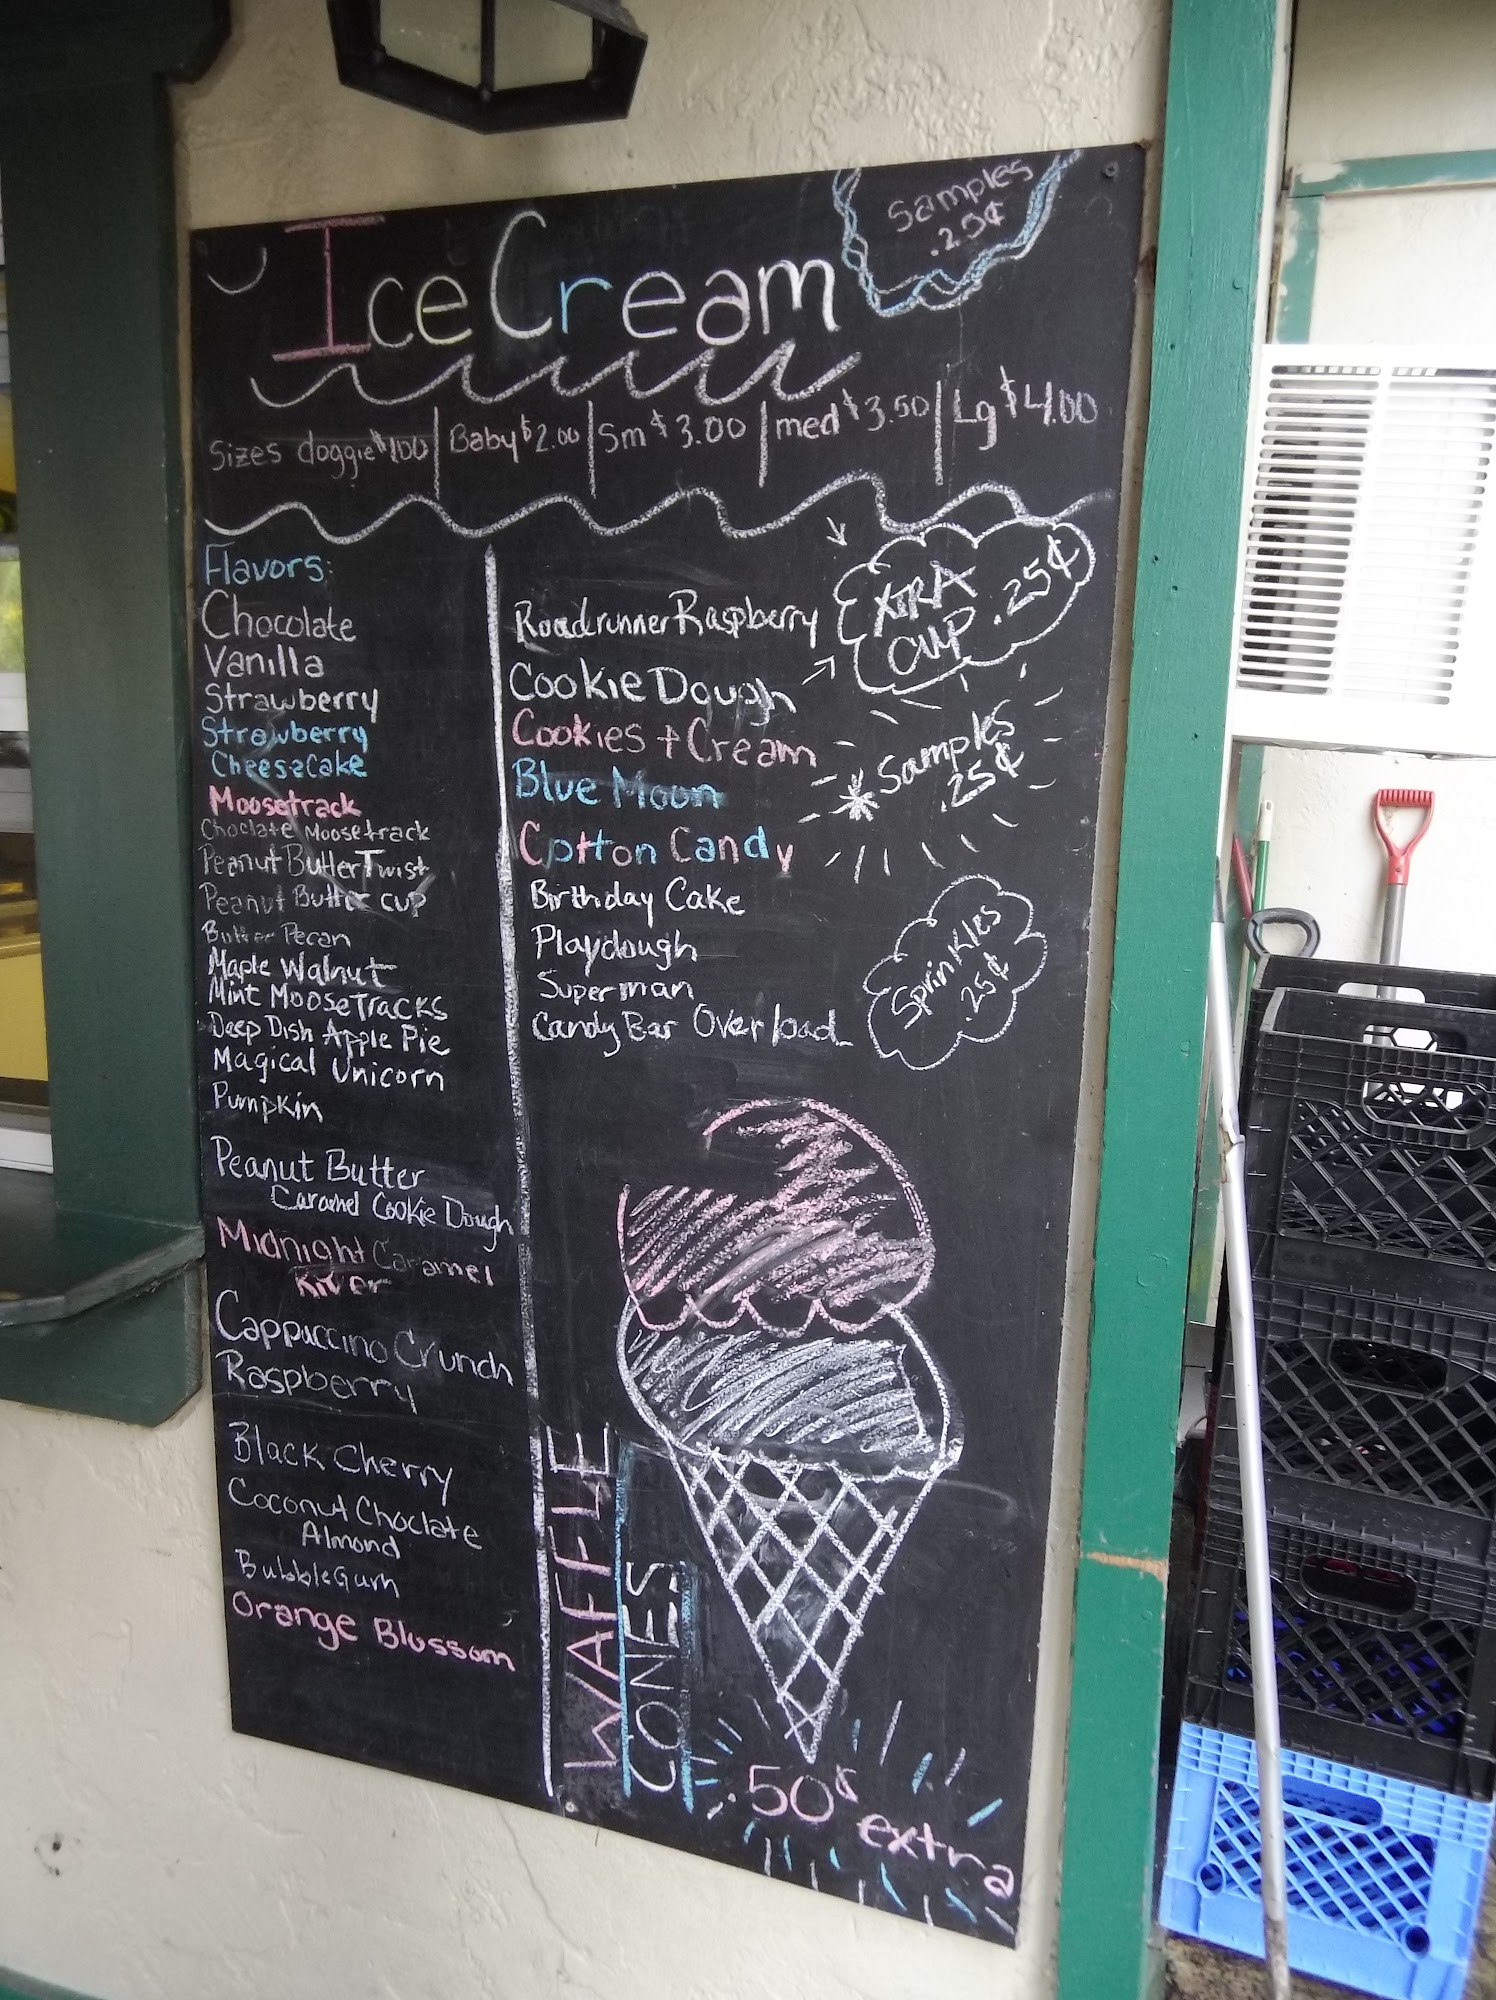 Ice Cream
Samples
.25¢
Sizes doggie $1.00 | Baby $2.00 | Sm $3.00 | med $3.50 | Lg $4.00
Flavors:
Chocolate
Vanilla
Strawberry
Strawberry
Cheesecake
Moosetrack
Choclate Moosetrack
Peanut Butter Twist
Peanut Butter cup
Butter Pecan
Maple Walnut
Mint MooseTracks
Deep Dish Apple Pie
Magical Unicorn
Pumpkin
Peanut Butter
Caramel Cookie Dough
Midnight Caramel
River
Cappuccino Crunch
Raspberry
Black Cherry
Coconut Choclate
Almond
BubbleGum
Orange Blossom
Roadrunner Raspberry
Cookie Dough
Cookies + Cream
Blue Moon
Cotton Candy
Birthday Cake
Playdough
Superman
Candy Bar Overload
XTRA
CUP .25¢
Samples
.25¢
Sprinkles
.25¢
WAFFLE
CONES
.50¢ extra